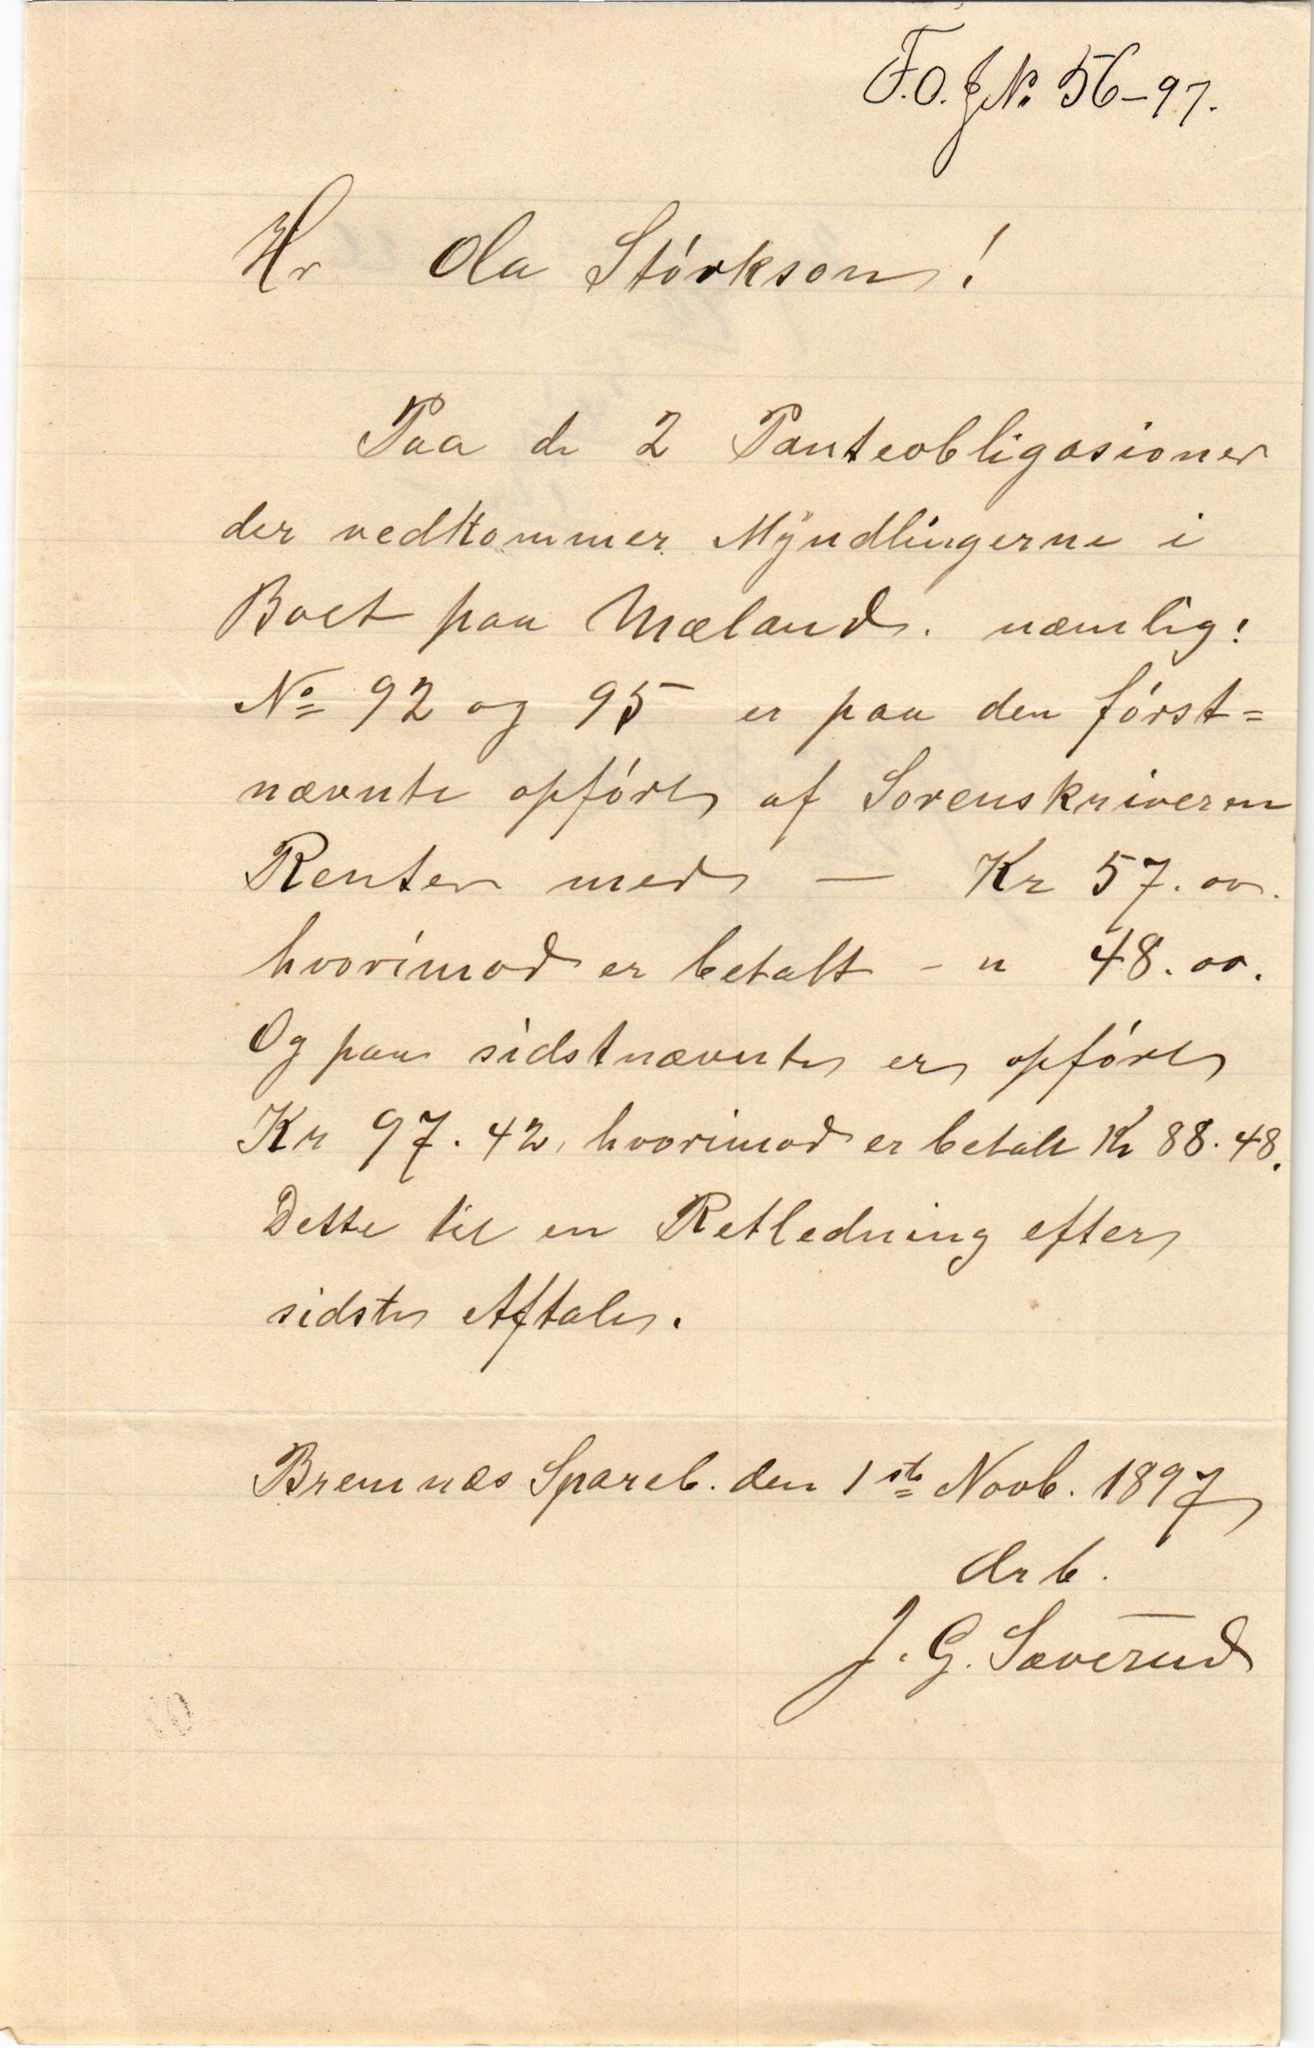 F.O.J.No 56-97.
Hr Ola Störkson!
Paa de 2 Panteobligasioner
der vedkommer Myndlingerne i
Boet paa Mæland. næmlig:
No 92 og 95 er paa den först=
nævnte opfört af Sorenskriveren
Renter med — Kr 57.00.
hvorimod er betalt - " 48.00.
Og paa sidstnævnte er opfört
Kr 97.42, hvorimod er betalt Kr 88.48.
Dette til en Retledning efter
sidste Aftale.
Bremnæs Spareb. den 1ste Novb. 1897
Ærb.
J. G. Sæverud